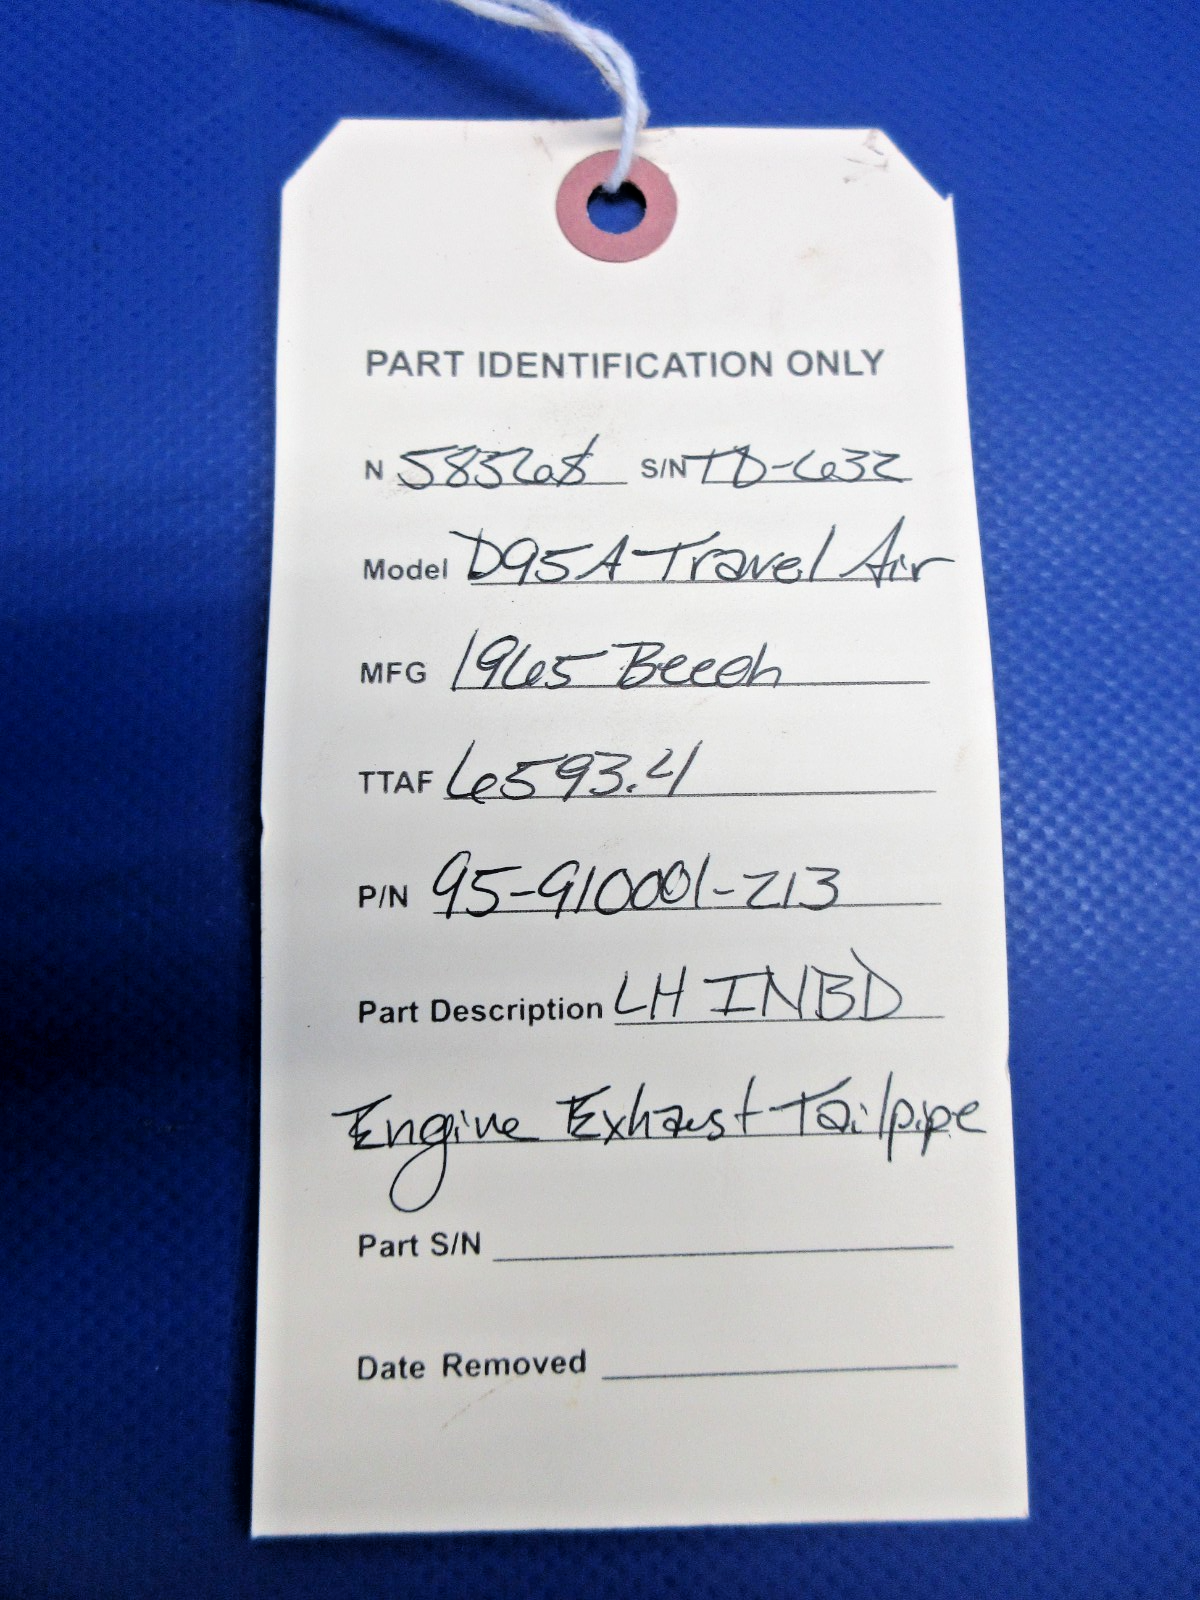 PART IDENTIFICATION ONLY
N 5836S S/N TD-632
Model D95A Travel Air
MFG 1965 Beech
TTAF 6593.4
P/N 95-910001-213
Part Description LH INBD
Engine Exhaust Tailpipe
Part S/N
Date Removed